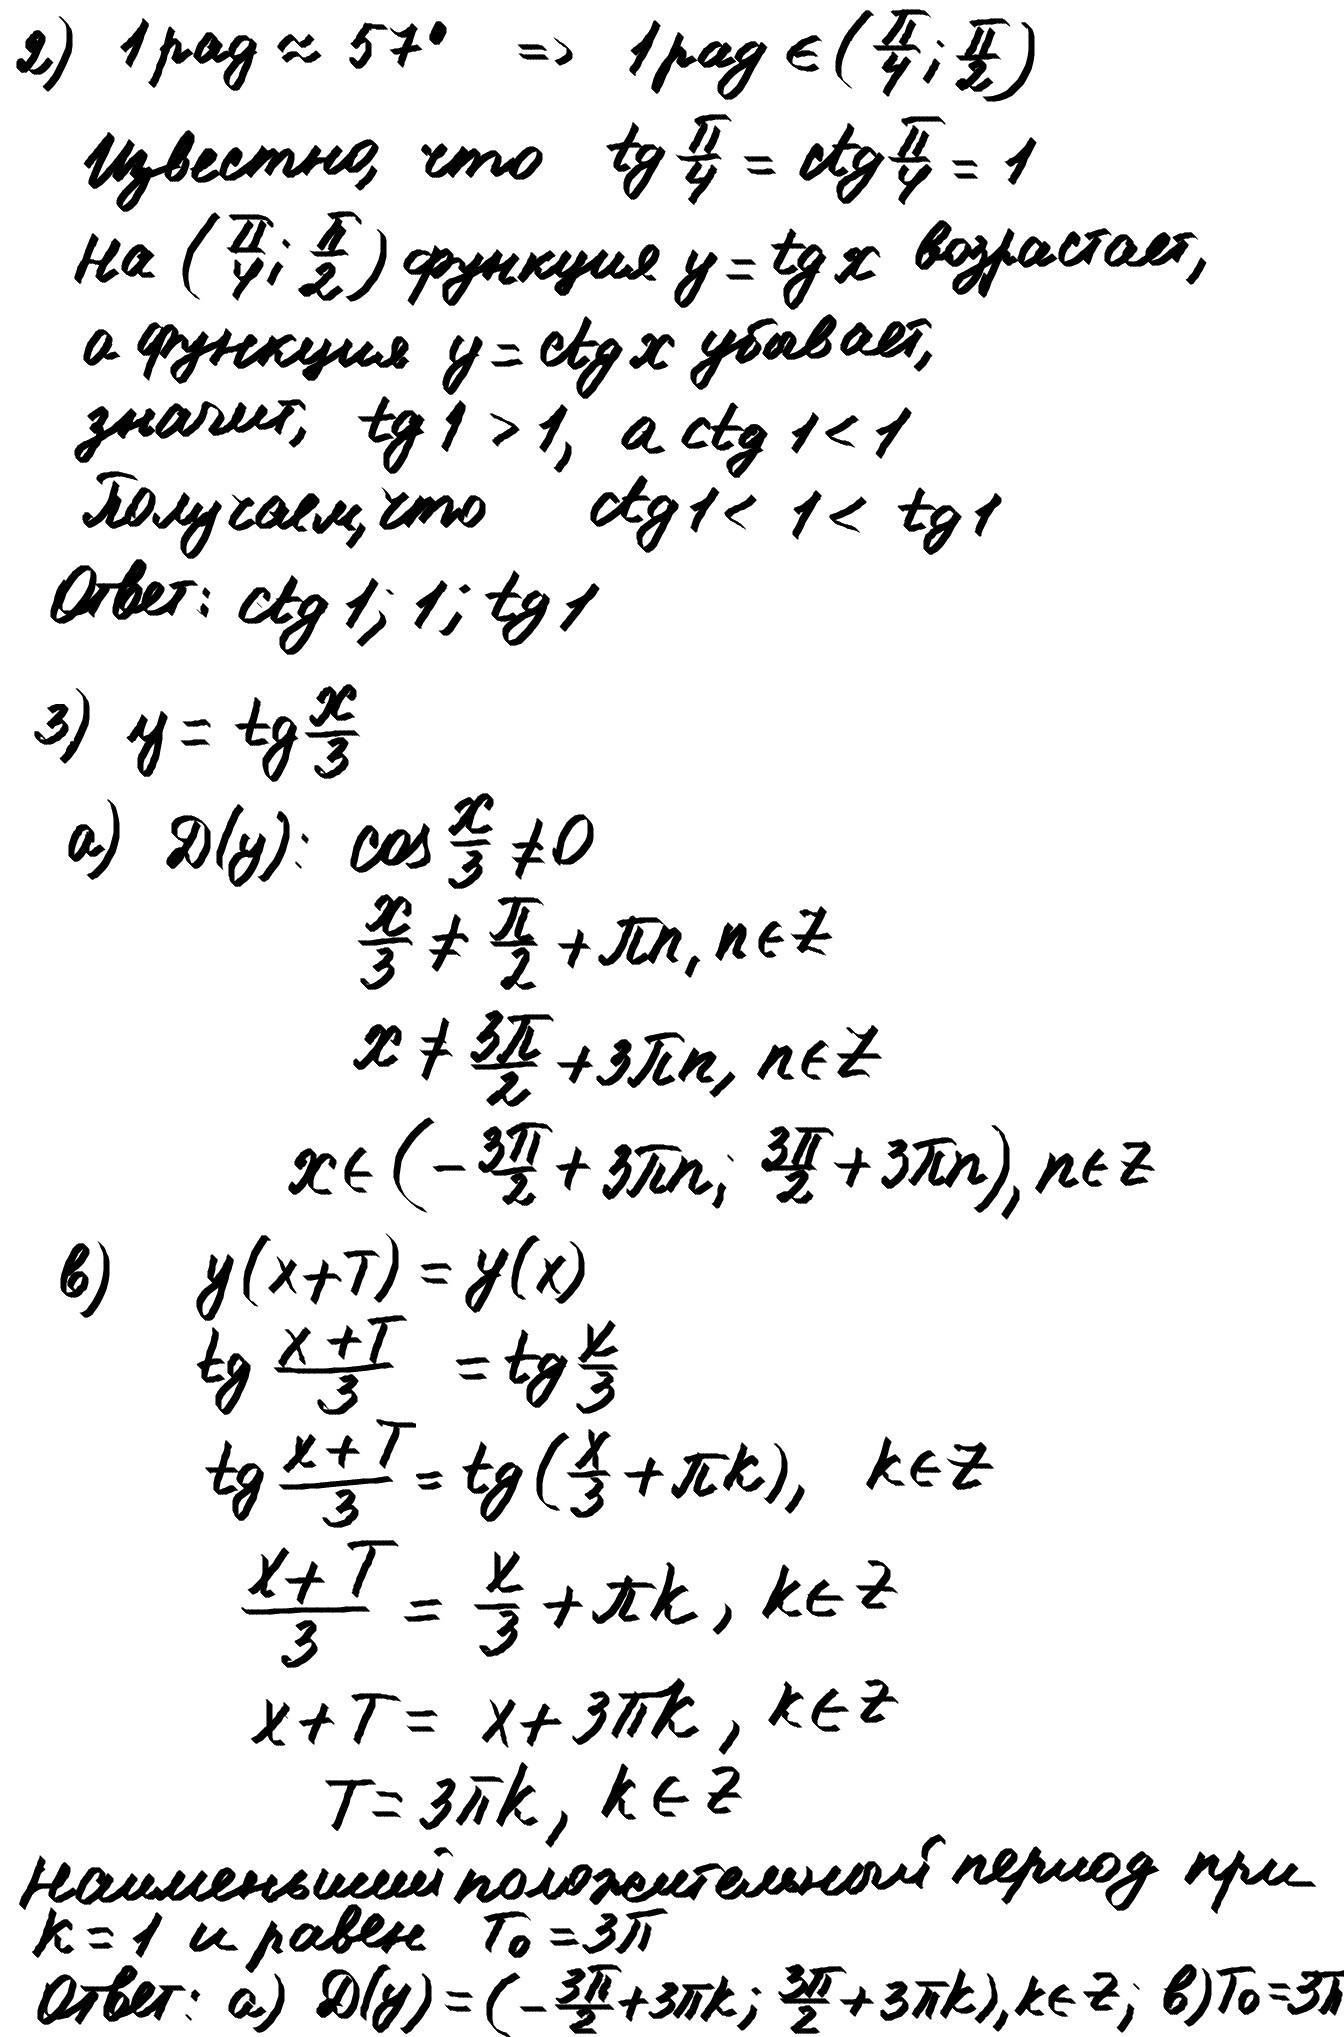 2) 1 рад ≈ 57° => 1 рад ∈ (π/4; π/2)
Известно, что tg π/4 = ctg π/4 = 1
На (π/4; π/2) функция y = tg x возрастает,
а функция y = ctg x убывает,
значит, tg 1 > 1, а ctg 1 < 1
Получаем, что ctg 1 < 1 < tg 1
Ответ: ctg 1; 1; tg 1
3) y = tg x/3
а) D(y): cos x/3 ≠ 0
x/3 ≠ π/2 + πn, n ∈ Z
x ≠ 3π/2 + 3πn, n ∈ Z
x ∈ (-3π/2 + 3πn; 3π/2 + 3πn), n ∈ Z
в) y(x+T) = y(x)
tg (x+T)/3 = tg x/3
tg (x+T)/3 = tg(x/3 + πk), k ∈ Z
(x+T)/3 = x/3 + πk, k ∈ Z
x+T = x+3πk, k ∈ Z
T = 3πk, k ∈ Z
Наименьший положительный период при
k = 1 и равен T₀ = 3π
Ответ: а) D(y) = (-3π/2 + 3πk; 3π/2 + 3πk), k ∈ Z; в) T₀ = 3π